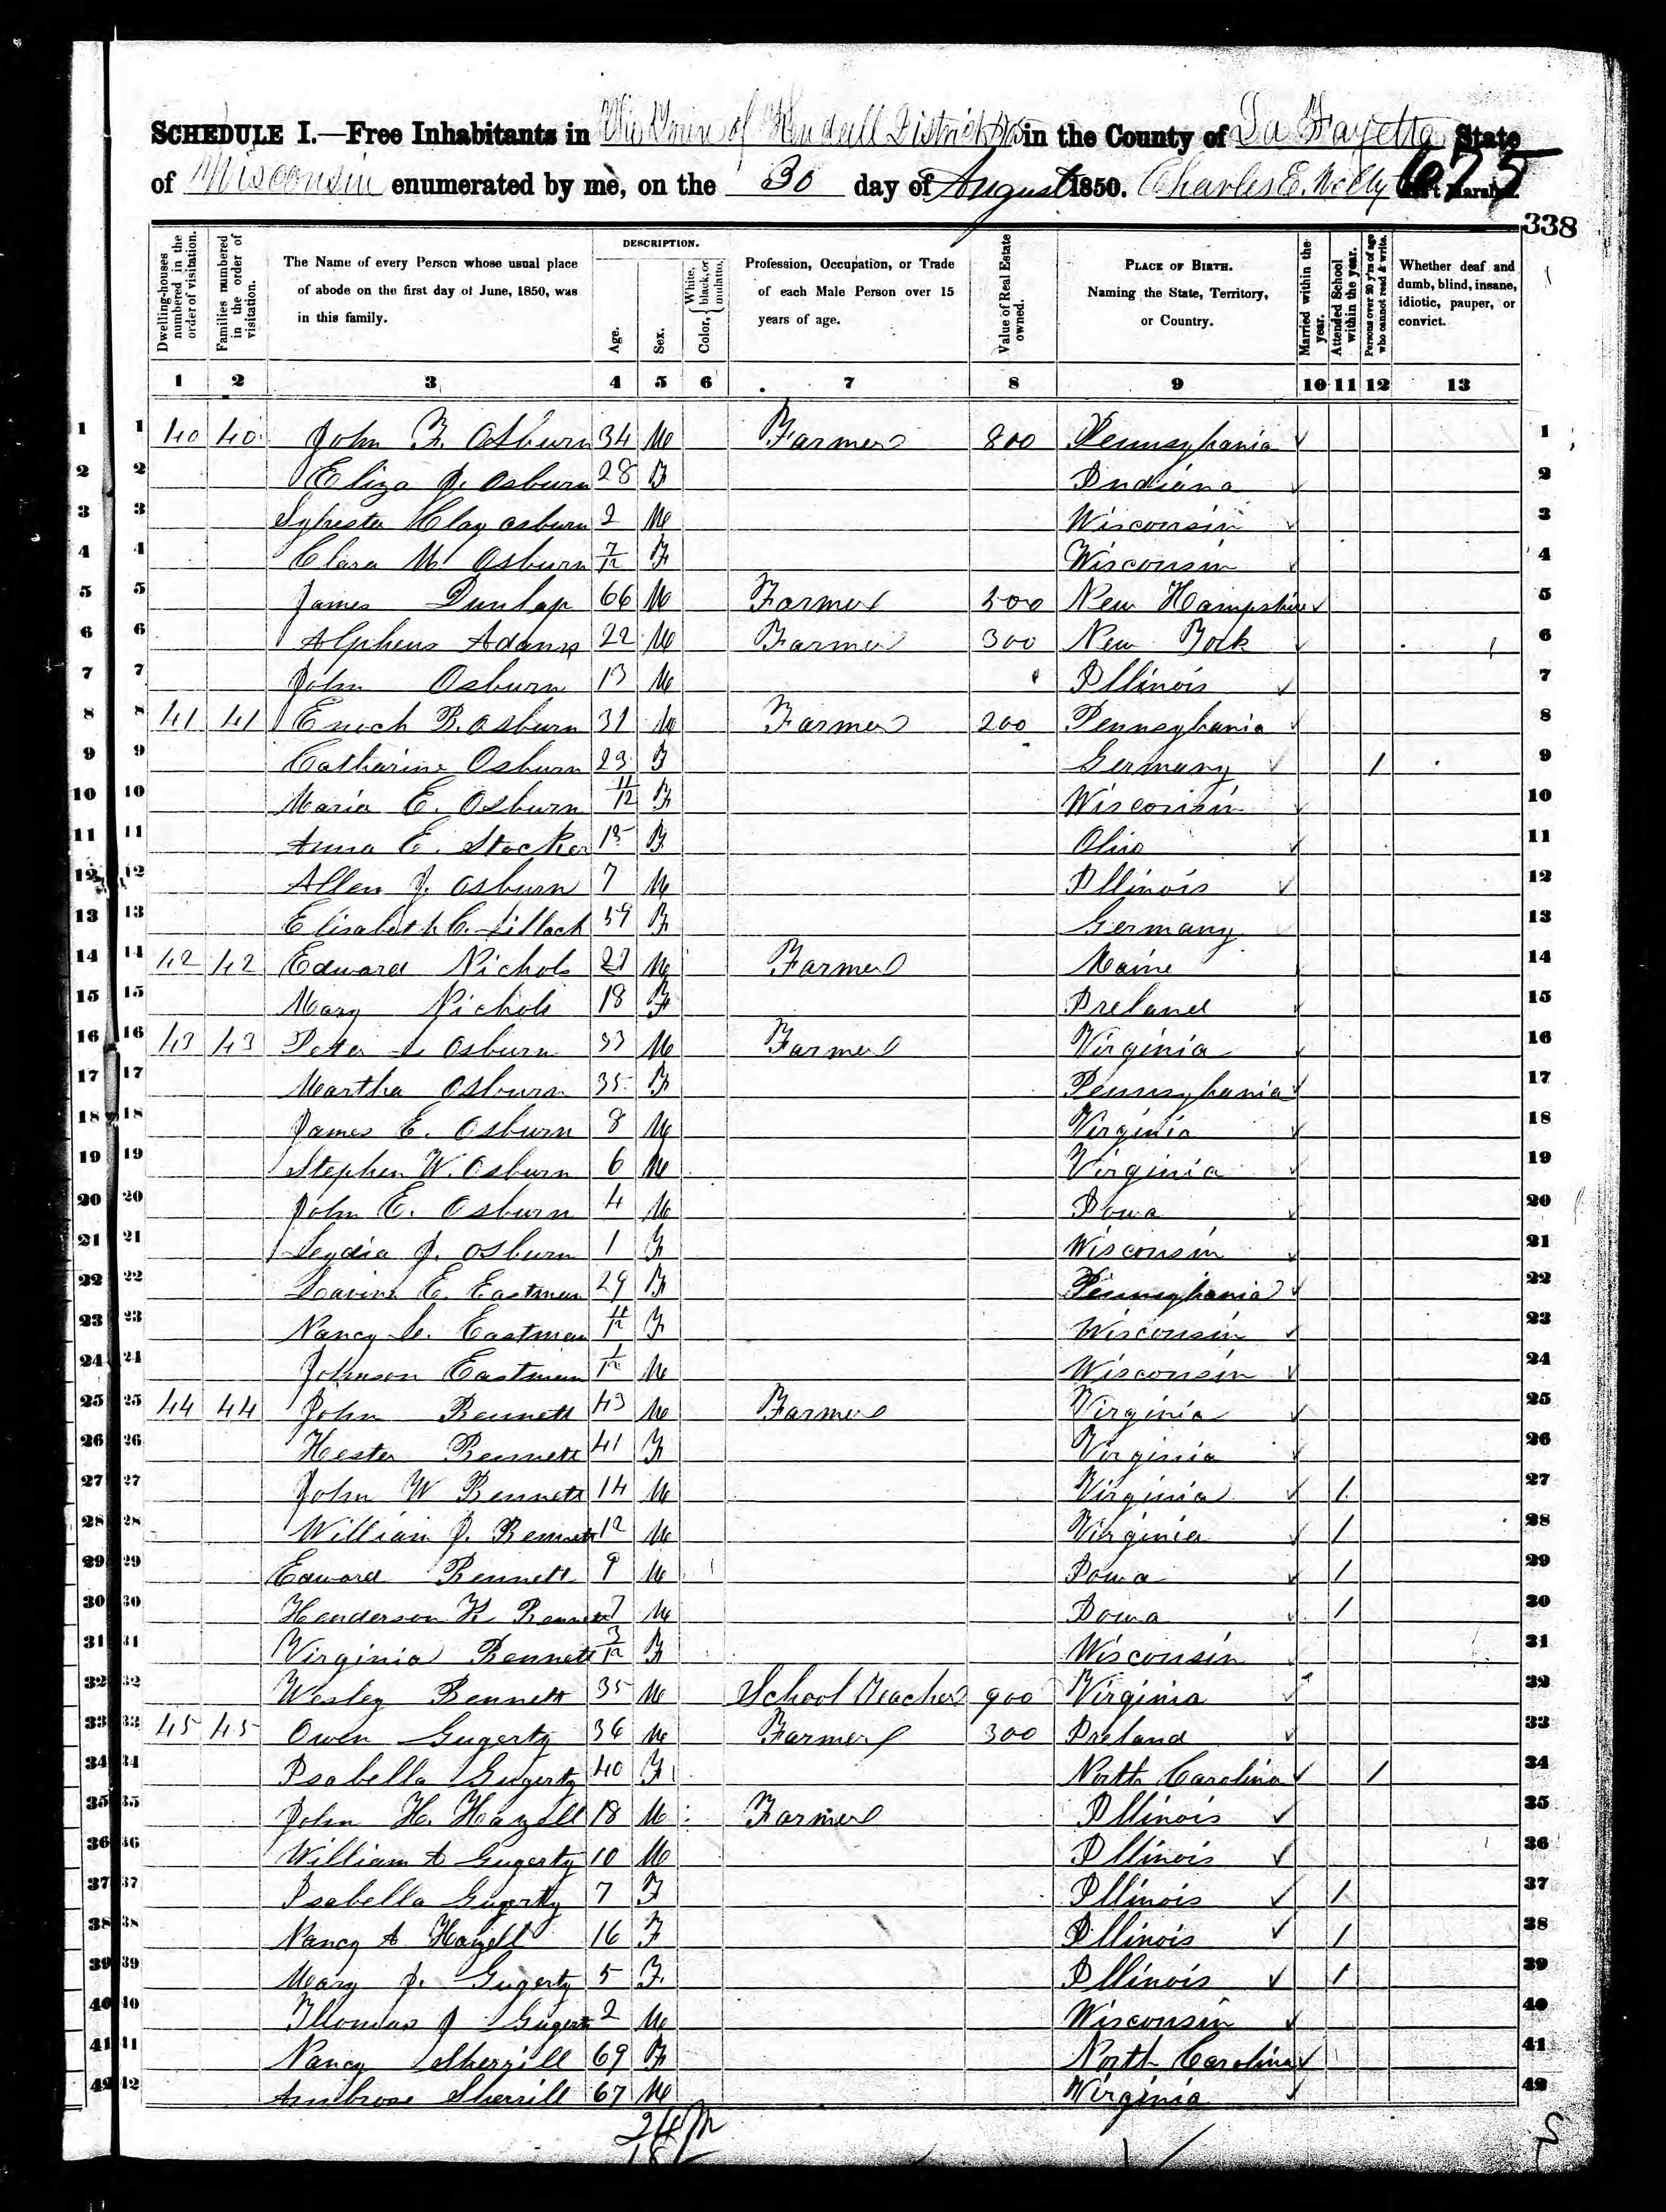 SCHEDULE I.—Free Inhabitants in The Town of Kendall District No in the County of La Fayette State
of Wisconsin enumerated by me, on the 30 day of August 1850. Charles E. Ass't Marshal.
675
338
Dwelling-houses numbered in the order of visitation.
Families numbered in the order of visitation.
The Name of every Person whose usual place of abode on the first day of June, 1850, was in this family.
DESCRIPTION.
Age.
Sex.
Color, { White, black, or mulatto.
Profession, Occupation, or Trade of each Male Person over 15 years of age.
Value of Real Estate owned.
PLACE OF BIRTH. Naming the State, Territory, or Country.
Married within the year.
Attended School within the year.
Persons over 20 y'rs of age who cannot read & write.
Whether deaf and dumb, blind, insane, idiotic, pauper, or convict.
1 2 3 4 5 6 7 8 9 10 11 12 13
1 1 40 40 John F. Osburn 34 M Farmer 800 Pennsylvania 1
2 2 Eliza J. Osburn 28 F Indiana 2
3 3 Sylvester Clay Osburn 2 M Wisconsin 3
4 4 Clara M. Osburn 7/12 F Wisconsin 4
5 5 James Dunlap 66 M Farmer 500 New Hampshire 5
6 6 Alpheus Adams 22 M Farmer 300 New York 6
7 7 John Osburn 13 M Illinois 7
8 8 41 41 Enoch B. Osburn 31 M Farmer 200 Pennsylvania 8
9 9 Catharine Osburn 23 F Germany 1 9
10 10 Maria E. Osburn 11/12 F Wisconsin 10
11 11 Anna E. Stocker 15 F Ohio 11
12 12 Allen J. Osburn 7 M Illinois 12
13 13 Elisabeth C. 59 F Germany 13
14 14 42 42 Edward Nichols 27 M Farmer Maine 14
15 15 Mary Nichols 18 F Ireland 15
16 16 43 43 Peter L Osburn 33 M Farmer Virginia 16
17 17 Martha Osburn 35 F Pennsylvania 17
18 18 James E. Osburn 8 M Virginia 18
19 19 Stephen W. Osburn 6 M Virginia 19
20 20 John E. Osburn 4 M Iowa 20
21 21 Lydia J. Osburn 1 F Wisconsin 21
22 22 Lavina E. Eastman 29 F Pennsylvania 22
23 23 Nancy Eastman 11/12 F Wisconsin 23
24 24 Johnson Eastman 1/12 M Wisconsin 24
25 25 44 44 John Bennett 43 M Farmer Virginia 25
26 26 Hester Bennett 41 F Virginia 26
27 27 John W Bennett 14 M Virginia 1 27
28 28 William J. Bennett 12 M Virginia 1 28
29 29 Edward Bennett 9 M Iowa 1 29
30 30 Henderson K Bennett 7 M Iowa 1 30
31 31 Virginia Bennett 3/12 F Wisconsin 31
32 32 Wesley Bennett 35 M School Teacher 900 Virginia 32
33 33 45 45 Owen Gugerty 36 M Farmer 300 Ireland 33
34 34 Isabella Gugerty 40 F North Carolina 1 34
35 35 John H. Hazell 18 M Farmer Illinois 35
36 36 William A Gugerty 10 M Illinois 36
37 37 Isabella Gugerty 7 F Illinois 1 37
38 38 Nancy A Hazell 16 F Illinois 1 38
39 39 Mary J. Gugerty 5 F Illinois 1 39
40 40 Thomas J Gugerty 2 M Wisconsin 40
41 41 Nancy Sherrill 69 F North Carolina 41
42 42 Ambrose Sherrill 67 M Virginia 42
24 M
18